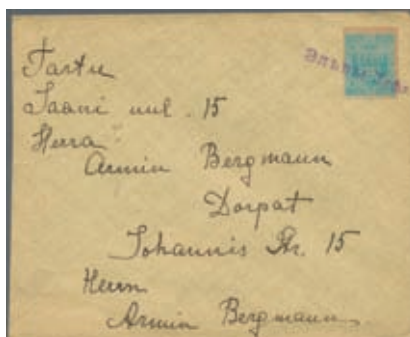 Tartu
Jaani uul. 15
Herra
Armin Bergmann
Dorpat
Johannis Str. 15
Herrn
Armin Bergmann.